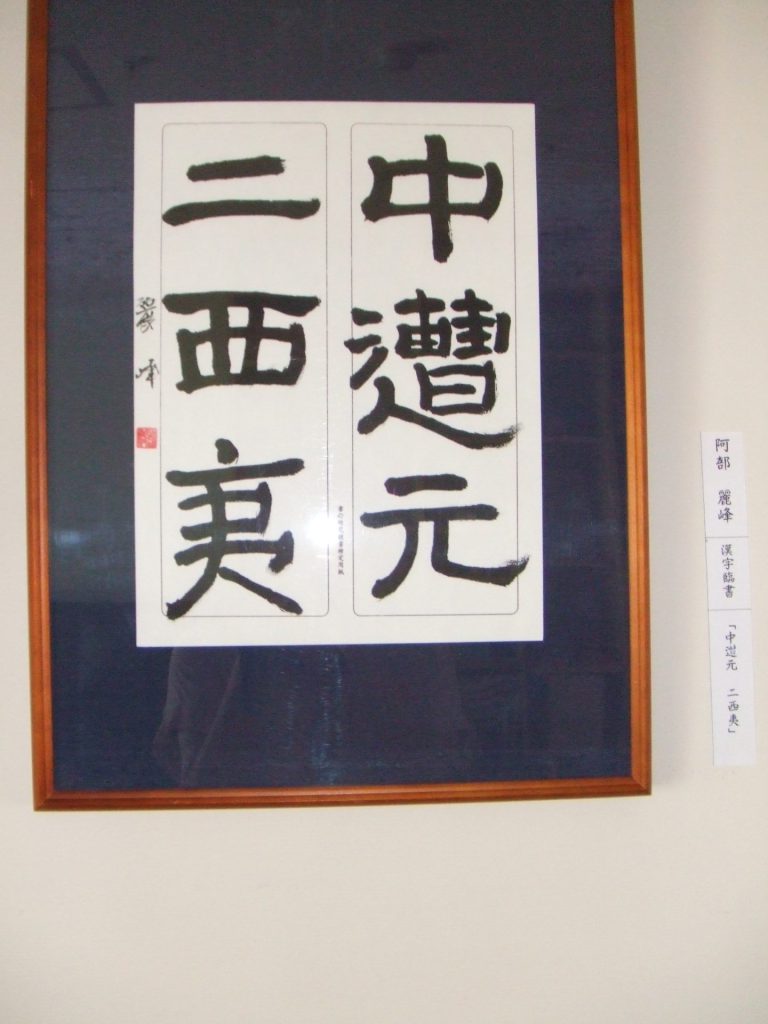 中遭元
二西夷
麗峰
阿部 麗峰
漢字臨書
「中遭元 二西夷」